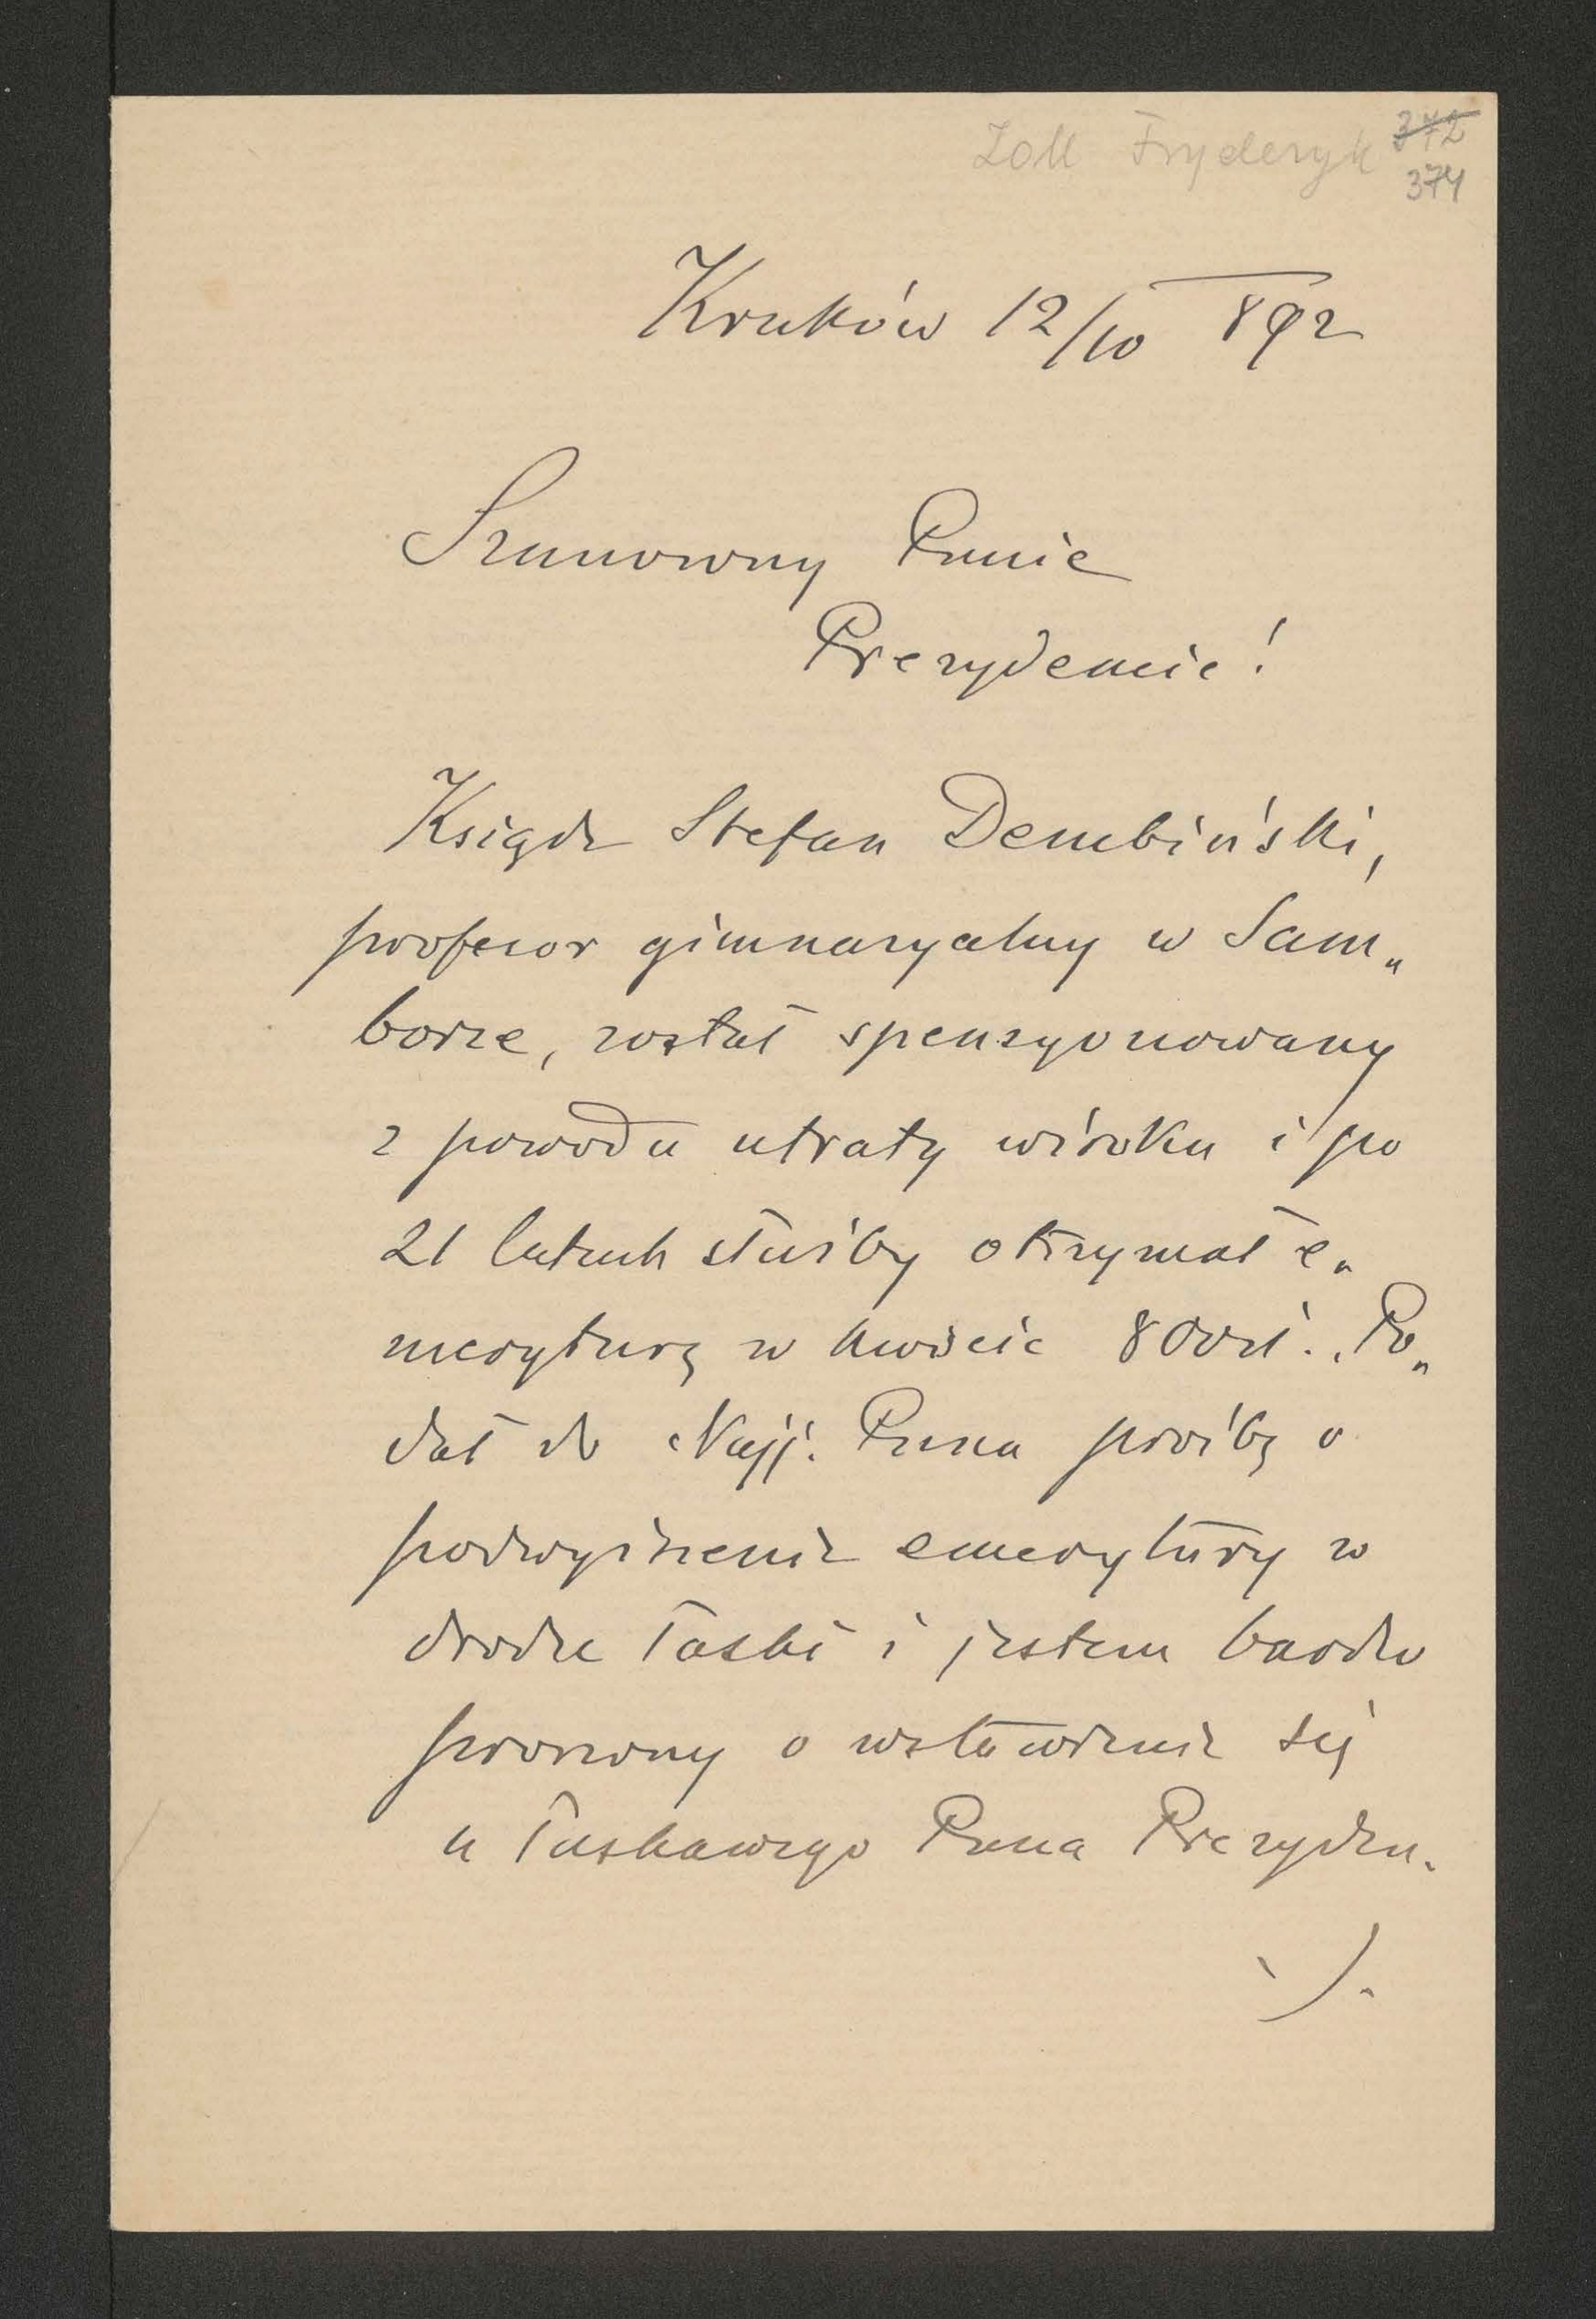 Zoll Fryderyk 372
374
Kraków 12/10 892
Szanowny Panie
Prezydencie!
Ksiądz Stefan Dembiński,
profesor gimnazyalny w Sam„
borze, został spensyonowany
z powodu utraty wzroku i po
21 latach służby otrzymał e„
meryturę w kwocie 800 zł. Po„
dał do Najj. Pana prośbę o
podwyższenie emerytury w
drodze łaski i jestem bardzo
proszony o wstawienie się
u łaskawego Pana Prezyden„